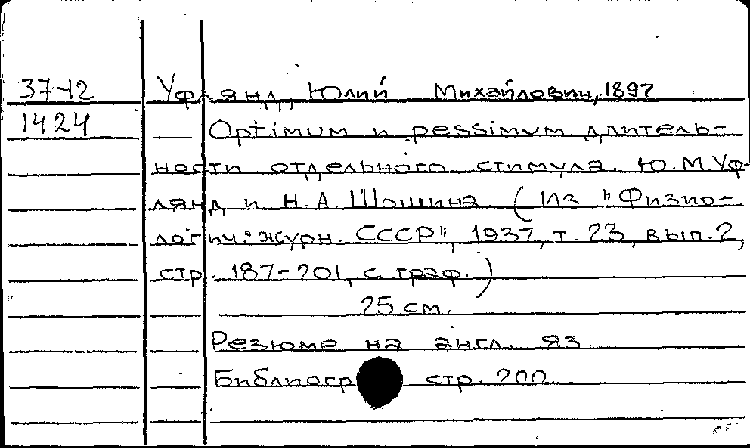 37-12 Уфлянд, Юлий Михайлович, 1897
1424 — Optimum и pessimum длитель-
ности отдельного стимула. Ю.М.Уф-
лянд и Н.А. Шошина (Из "Физио-
логич. журн. СССР", 1937, т. 23, вып. 2,
стр. 187-201, с граф.)
25 см.
Резюме на англ. яз
Библиогр стр. 200